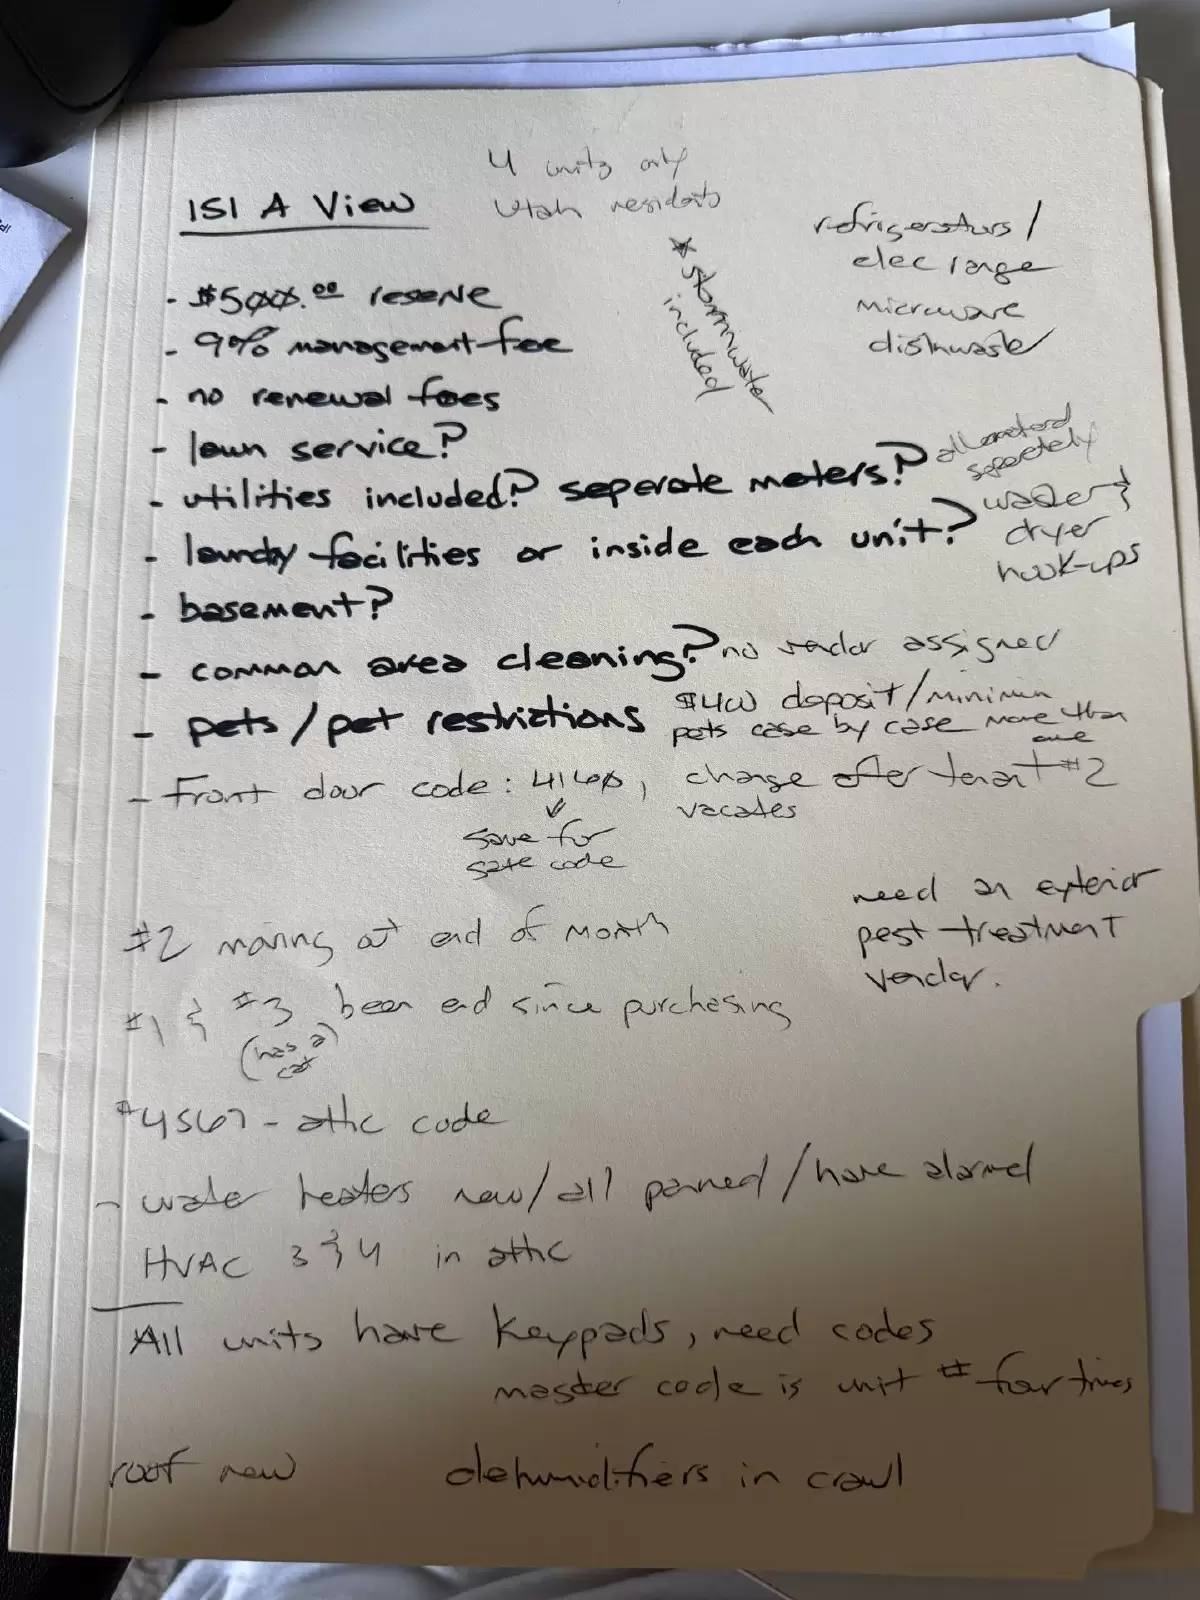 4 units only
Utah residents
151 A View
refrigerators/
elec range
microwave
dishwasher
* stormwater
included
- $500.00 reserve
- 9% management fee
- no renewal fees
- lawn service?
- utilities included? seperate meters? all metered
seperately
- laundry facilities or inside each unit? washer &
dryer
hook-ups
- basement?
- common area cleaning? no vendor assigned
- pets/pet restrictions $400 deposit/minimum
pets case by case more than
one
- Front door code: 4140, change after tenant #2
vacates
save for
gate code
need an exterior
pest treatment
vendor.
#2 moving at end of month
#1 & #3 been end since purchasing
(has a
cat)
#4567 - attic code
- water heaters new/all panned/have alarmed
HVAC 3 & 4 in attic
All units have keypads, need codes
master code is unit # four times
roof new
dehumidifiers in crawl